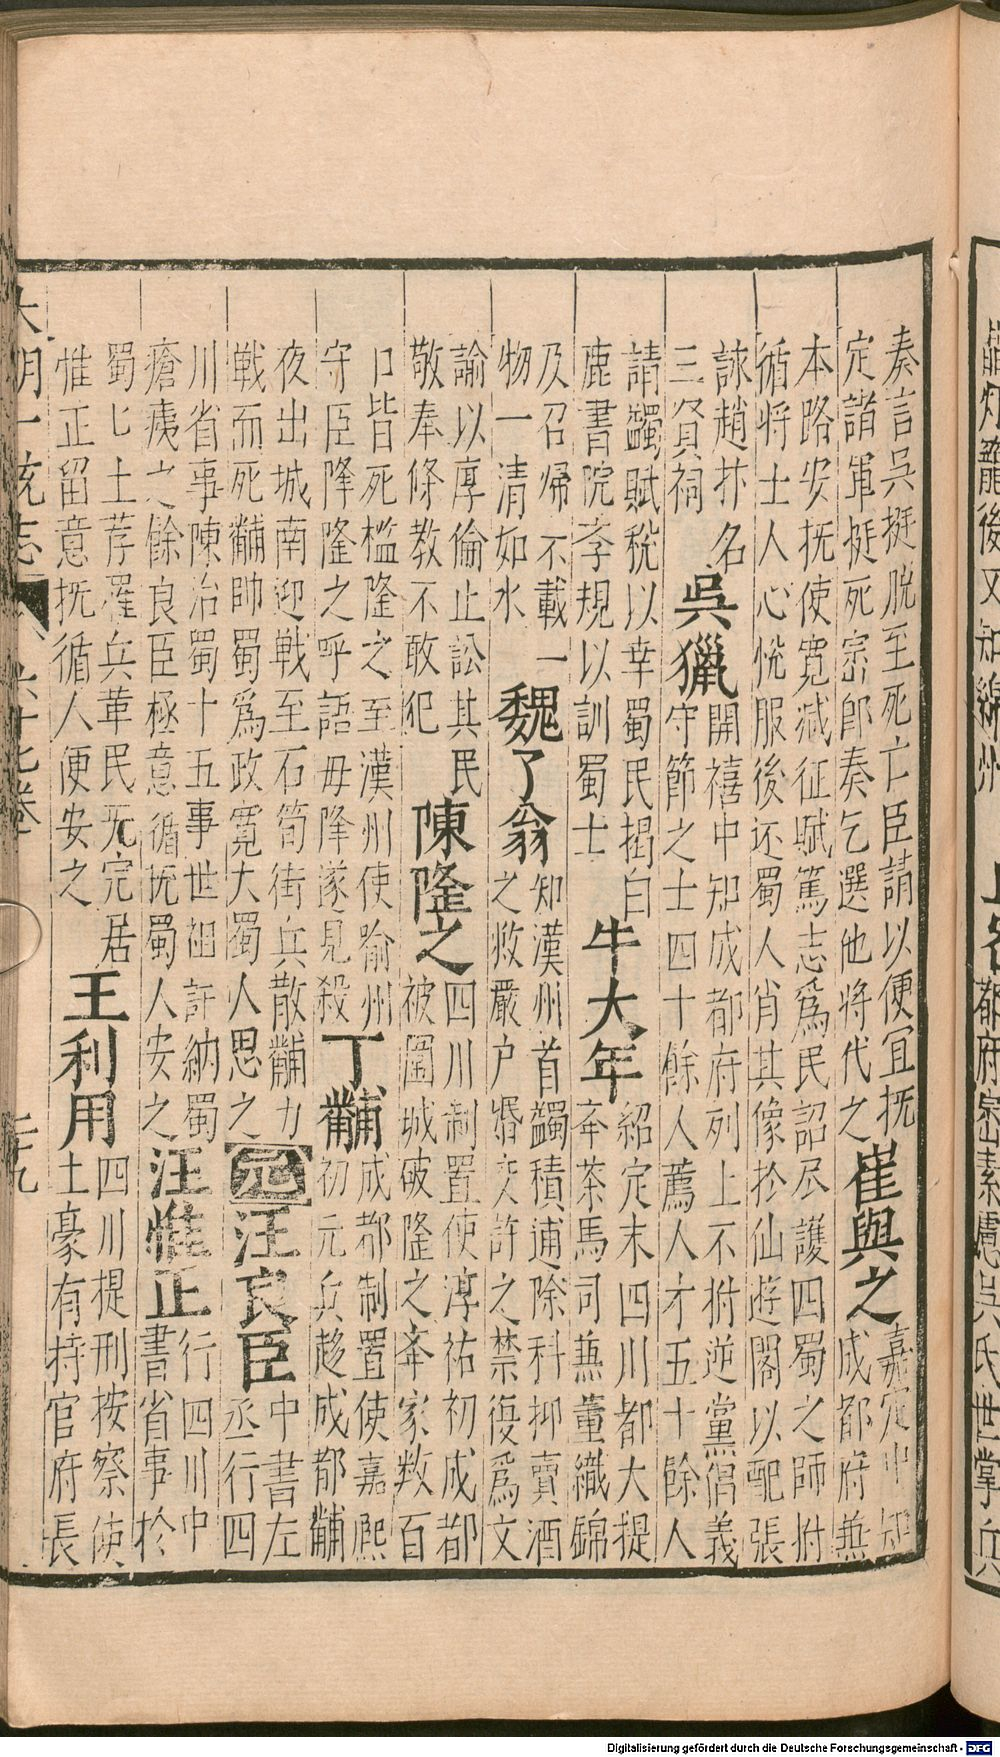 奏言吳挺脫至死亡臣請以便宜抚
定諧軍挺死宗郎奏乞選他將代之
崔與之
嘉定中知
成都府兼
本路安抚使寬減征賦篤志為民詔尽護四蜀之師拊
循將士人心恱服後还蜀人肖其像於仙遊閣以配張
詠趙抃名
三賢祠
吳獵
開禧中知成都府列上不拊逆黨倡義
守節之士四十餘人薦人才五十餘人
請蠲賦稅以幸蜀民揭白
鹿書院李規以訓蜀士
牛大年
紹定末四川都大提
奔茶馬司兼董織錦
及召帰不載一
物一清如水
魏了翁
知漢州首蠲積逋除科抑賣酒
之救嚴户婚交許之禁復為文
諭以厚倫止訟其民
敬奉條教不敢犯
陳隆之
四川制置使淳祐初成都
被圍城破隆之奔家数百
口皆死檻隆之至漢州使喻州
守臣降隆之呼語毋降遂見殺
丁黼
成都制置使嘉熙
初元兵趍成都黼
夜出城南迎戰至石筍街兵散黼力
戰而死黼帥蜀為政寬大蜀人思之
元
汪良臣
中書左
丞行四
川省事陳治蜀十五事世祖許納蜀
瘡痍之餘良臣極意循抚蜀人安之
汪惟正
行四川中
書省事於
蜀七土荐罹兵革民无完居
惟正留意抚循人便安之
王利用
四川提刑按察使
土豪有持官府長
大明一統志
六十七卷
二十九
Digitalisierung gefördert durch die Deutsche Forschungsgemeinschaft - DFG